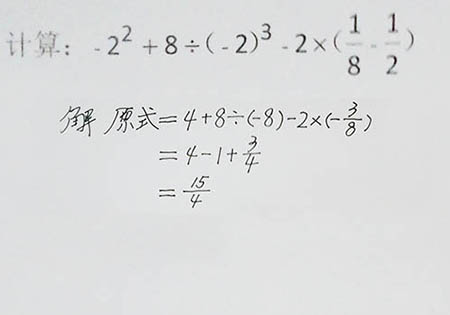 计算: -2² + 8 ÷ (-2)³ - 2 × (1/8 - 1/2)
解 原式 = 4 + 8 ÷ (-8) - 2 × (-3/8)
= 4 - 1 + 3/4
= 15/4